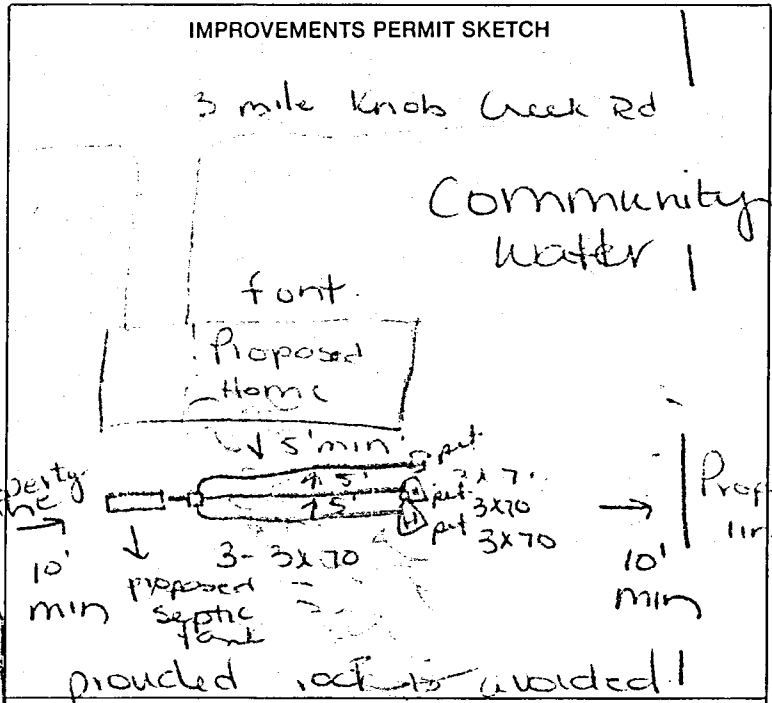 IMPROVEMENTS PERMIT SKETCH
3 mile Knob Creek Rd
Community
Water
font
Proposed
Home
5' min
pit
5'
pit 3x70
5'
pit 3x70
3 - 3x70
10'
min
proposed
septic
tank
10'
min
provided rock is avoided